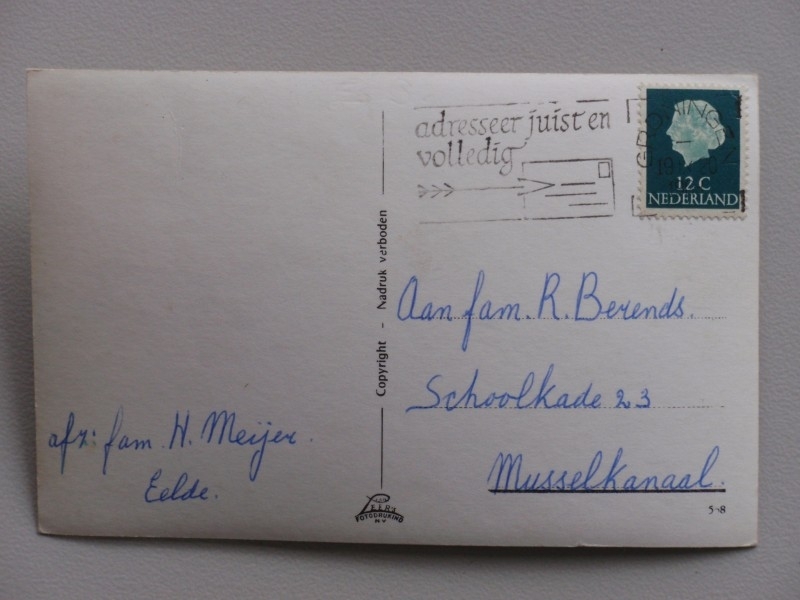 adresseer juist en
volledig
GRONINGEN
12 C
NEDERLAND
Aan fam. R. Berends.
Schoolkade 23
Musselkanaal.
afz: fam. H. Meijer.
Eelde.
Copyright - Nadruk verboden
LEERS
FOTODRUKIND
N.V.
5-8